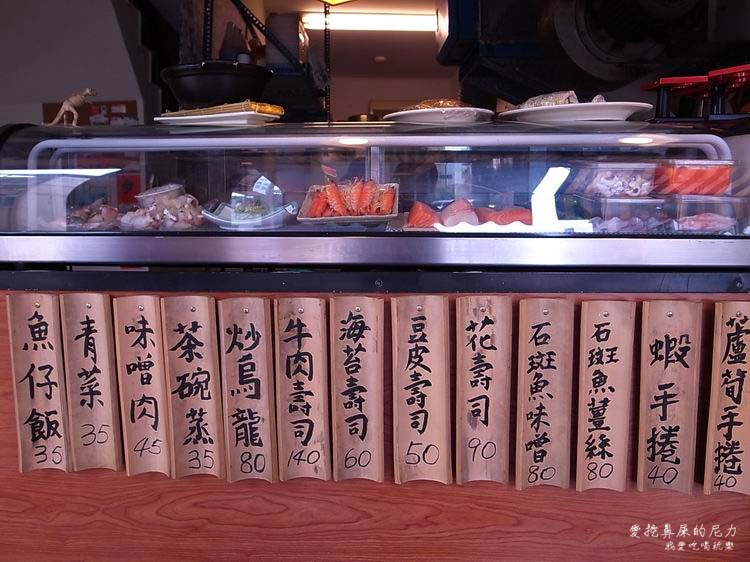 魚仔飯 35
青菜 35
味噌肉 45
茶碗蒸 35
炒烏龍 80
牛肉壽司 140
海苔壽司 60
豆皮壽司 50
花壽司 90
石斑魚味噌 80
石斑魚薑絲 80
蝦手捲 40
蘆筍手捲 40
愛挖鼻屎的尼力
我愛吃喝玩樂